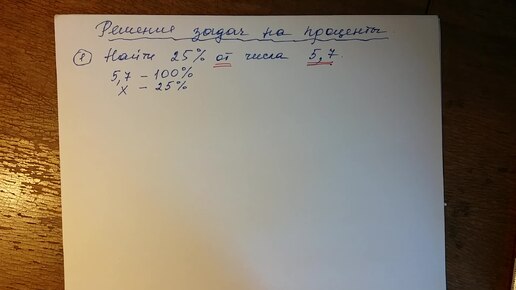 Решение задач на проценты.
① Найти 25% от числа 5,7.
5,7 – 100%
x – 25%